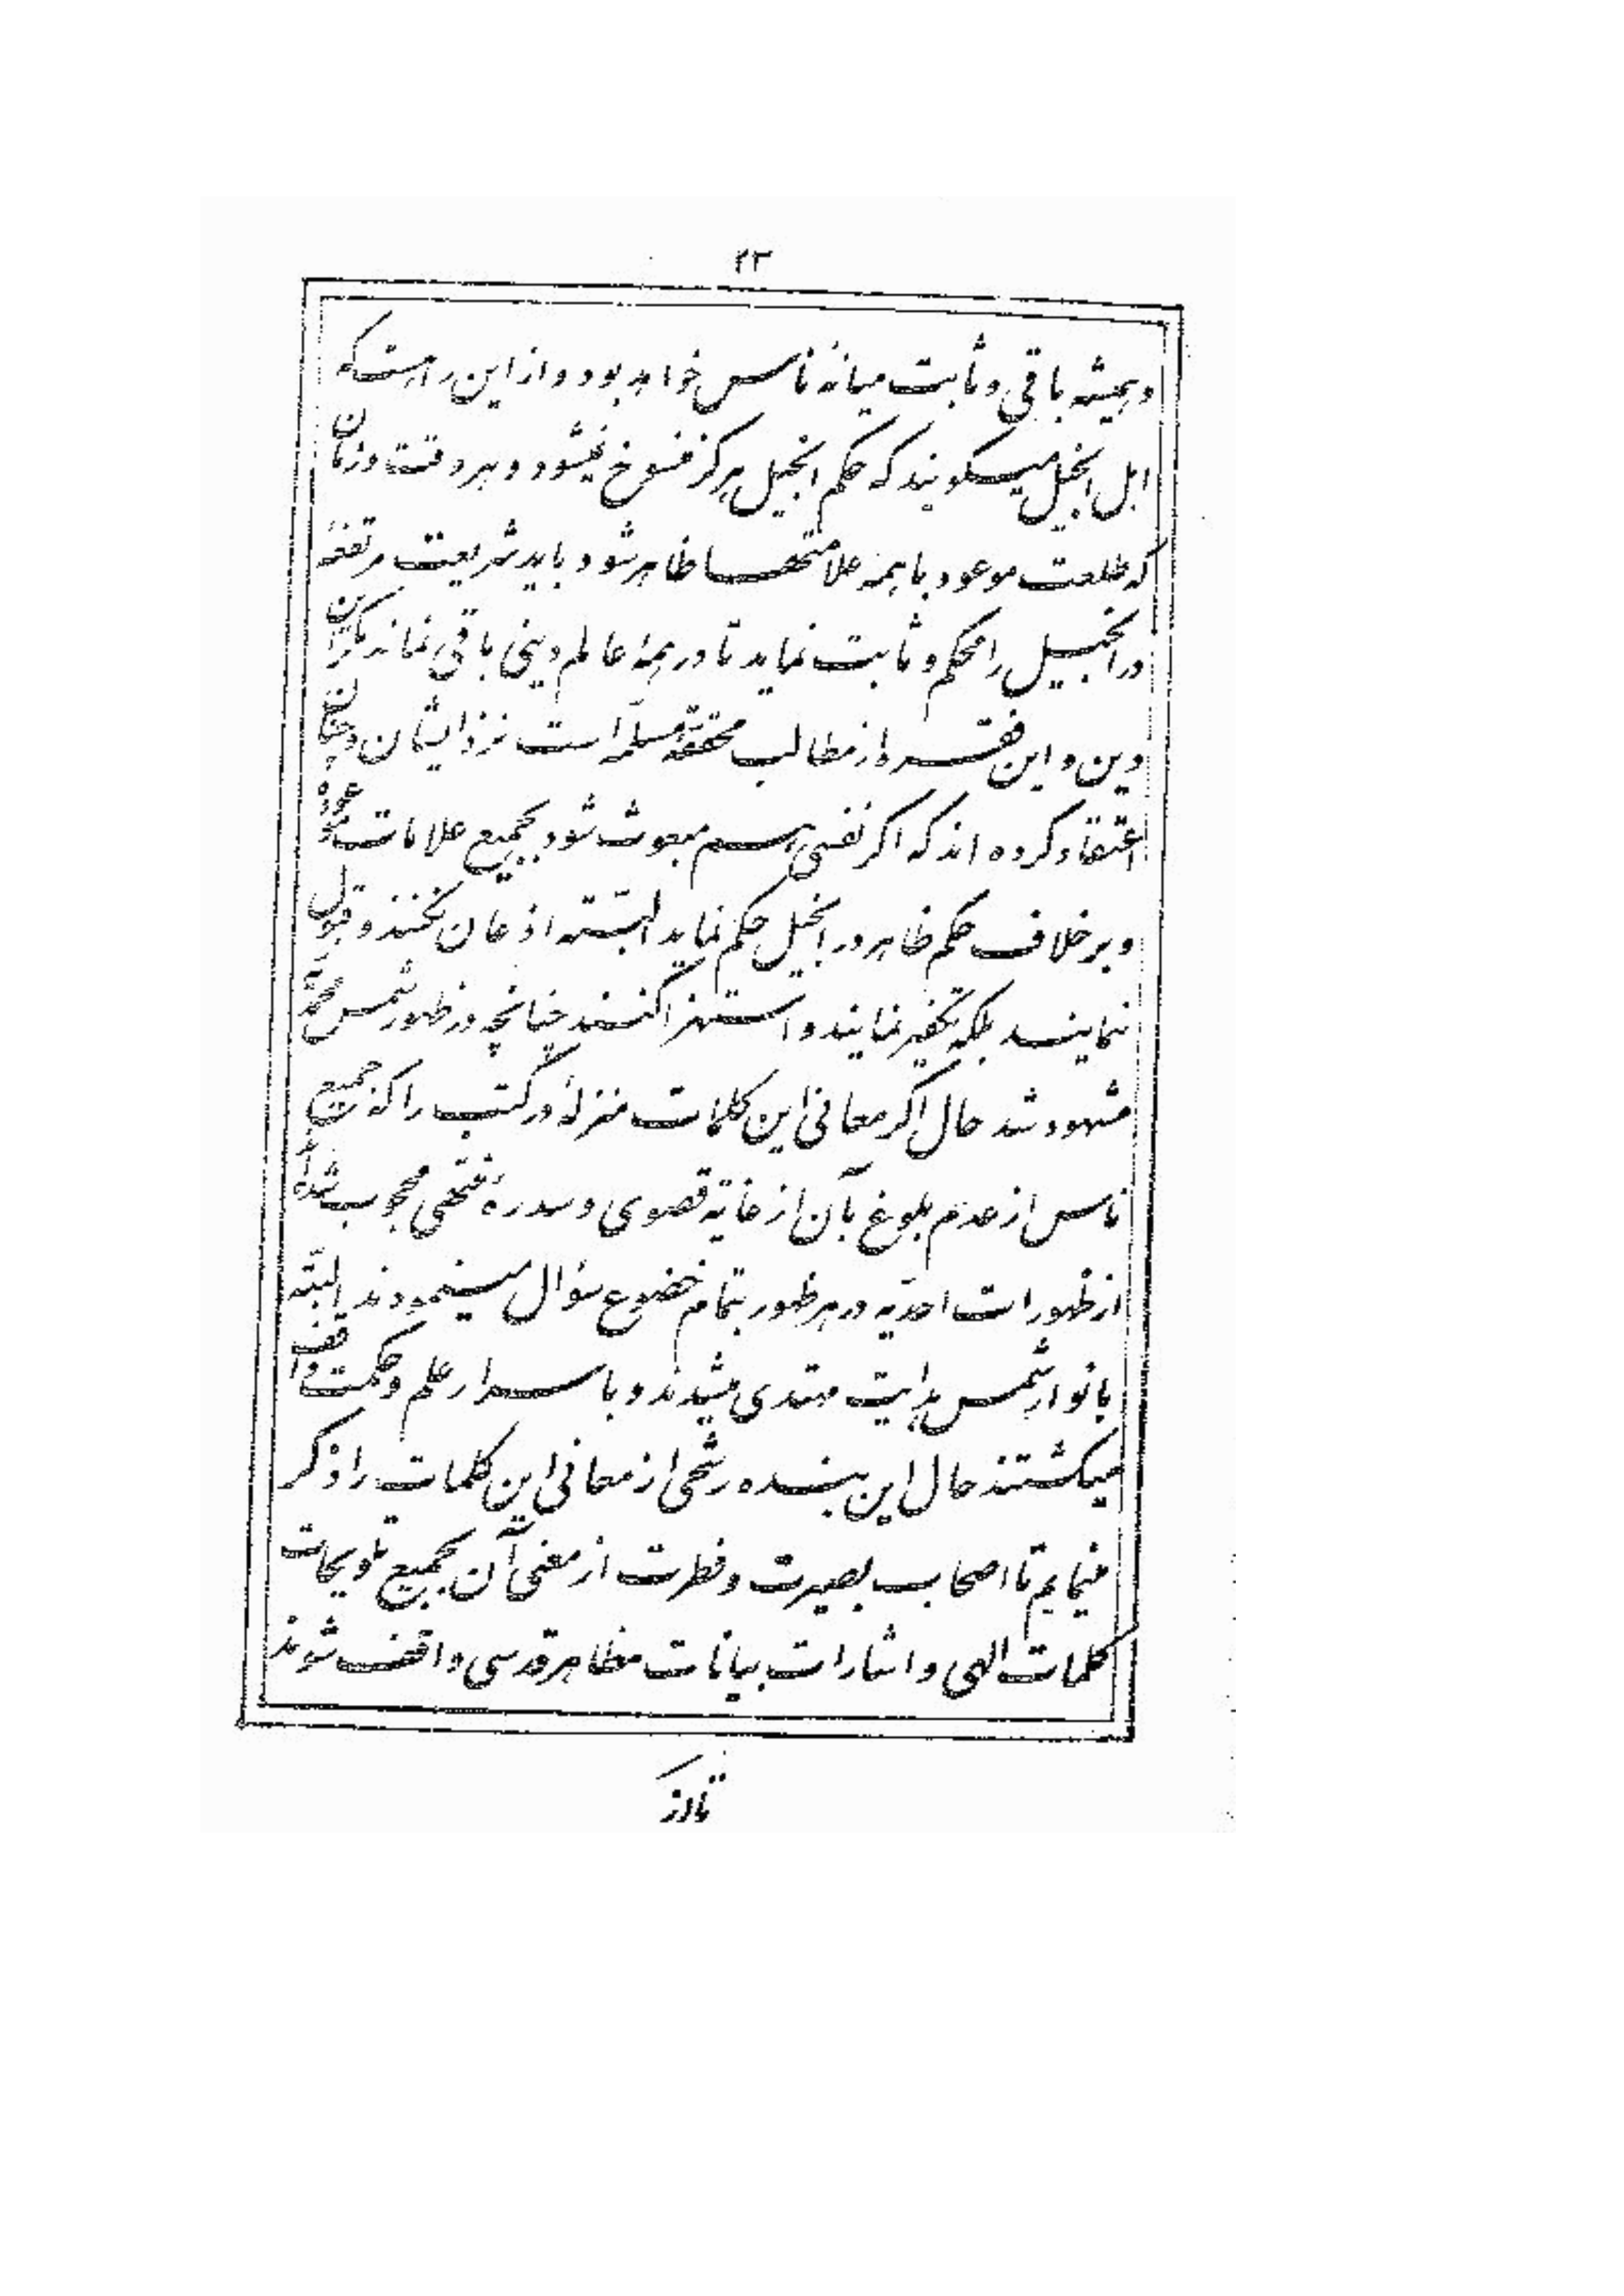 ٢٣
و هميشه باقی و ثابت ميانه ناس خواهد بود و از اين راه است که
اهل انجيل ميگويند که حکم انجيل هرگز منسوخ نميشود و هر وقت و زمان
که طلعت موعود با همه علامتها ظاهر شود بايد شريعت مرتفعه
در انجيل را محکم و ثابت نمايد تا در همه عالم دينی باقی نماند مگر اين
دين و اين فقره از مطالب محققه مسلمه است نزد ايشان و چنان
اعتقاد کرده اند که اگر نفسی هم مبعوث شود بجميع علامات موعوده
و بر خلاف حکم ظاهر در انجيل حکم نمايد البتّه اذعان نکنند و قبول
ننمايند بلکه تکفير نمايند و استهزا کنند چنانچه در ظهور شمس محمديّه
مشهود شد حال اگر معانی اين کلمات منزله در کتب را که جميع
ناس از عدم بلوغ بآن از غايه قصوی و سدره منتهی محجوب شده‌اند
از ظهورات احديّه در هر ظهور بتمام خضوع سؤال مينمودند البتّه
بانوار شمس هدايت مهتدی ميشدند و باسرار علم و حکمت واقف
ميگشتند حال اين بنده رشحی از معانی اين کلمات را ذکر
مينمايم تا اصحاب بصيرت و فطرت از معنی آن بجميع تلويحات
کلمات الهی و اشارات بيانات مظاهر قدسی واقف شوند
تا از